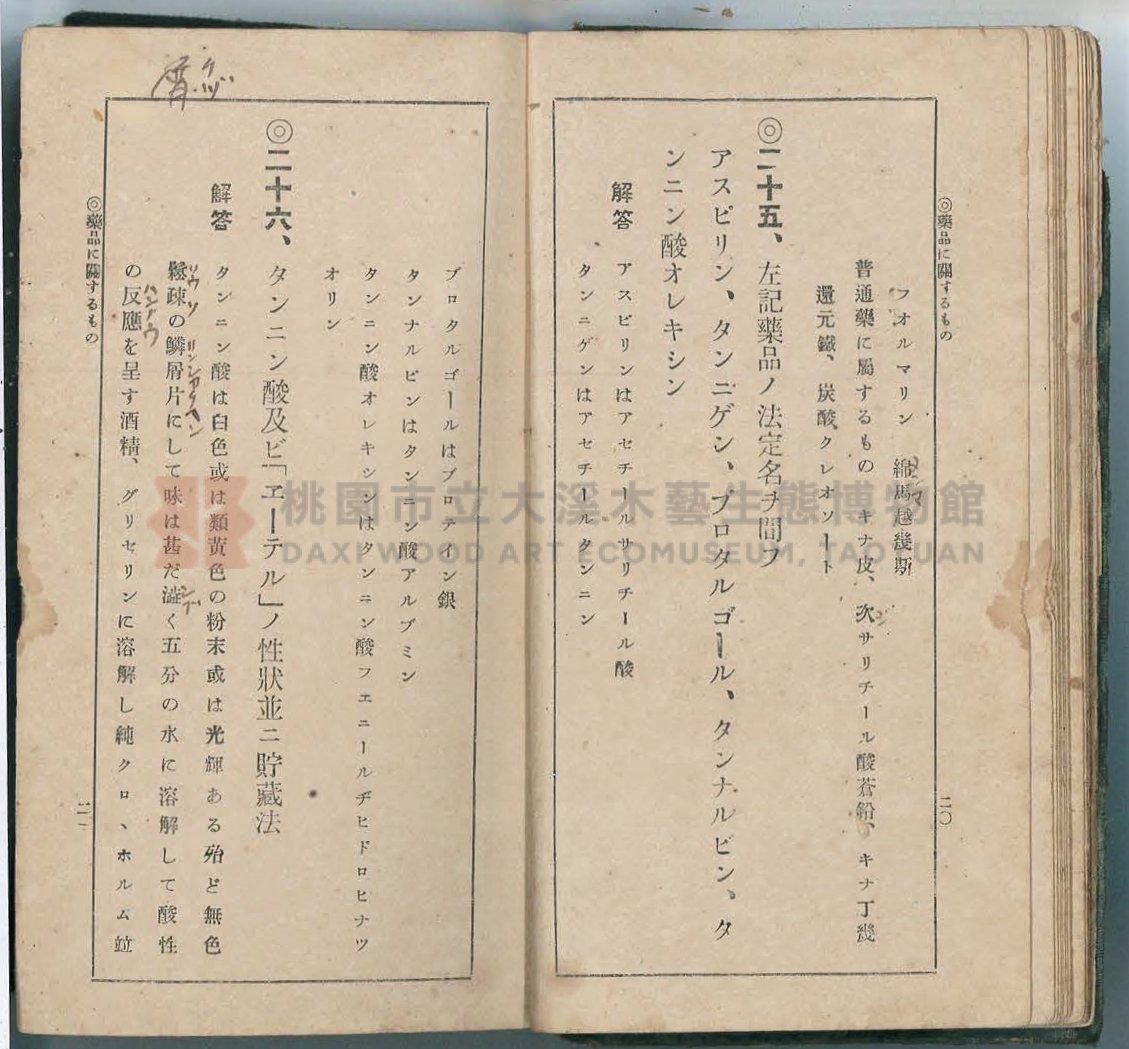 ◎藥品に關するもの
二〇
フオルマリン　綿馬越幾斯
メンマ
普通藥に屬するもの　キナ皮、次サリチール酸蒼鉛、キナ丁幾
ジ
還元鐵、炭酸クレオソート
◎二十五、左記藥品ノ法定名ヲ問フ
アスピリン、タンニゲン、プロタルゴール、タンナルビン、タ
ンニン酸オレキシン
解答　アスピリンはアセチールサリチール酸
タンニゲンはアセチールタンニン
プロタルゴールはプロテイン銀
タンナルビンはタンニン酸アルブミン
タンニン酸オレキシンはタンニン酸フエニールヂヒドロヒナツ
オリン
◎二十六、タンニン酸及ビ「エーテル」ノ性狀並ニ貯藏法
解答　タンニン酸は白色或は類黃色の粉末或は光輝ある殆ど無色
鬆疎の鱗屑片にして味は甚だ澁く五分の水に溶解して酸性
ソウソ　リンシヤウヘン　シブ
の反應を呈す酒精、グリセリンに溶解し純クロヽホルム竝
ハンアウ
◎藥品に關するもの
二一
屑
クヅ
桃園市立大溪木藝生態博物館
DAXI WOOD ART ECOMUSEUM, TAOYUAN